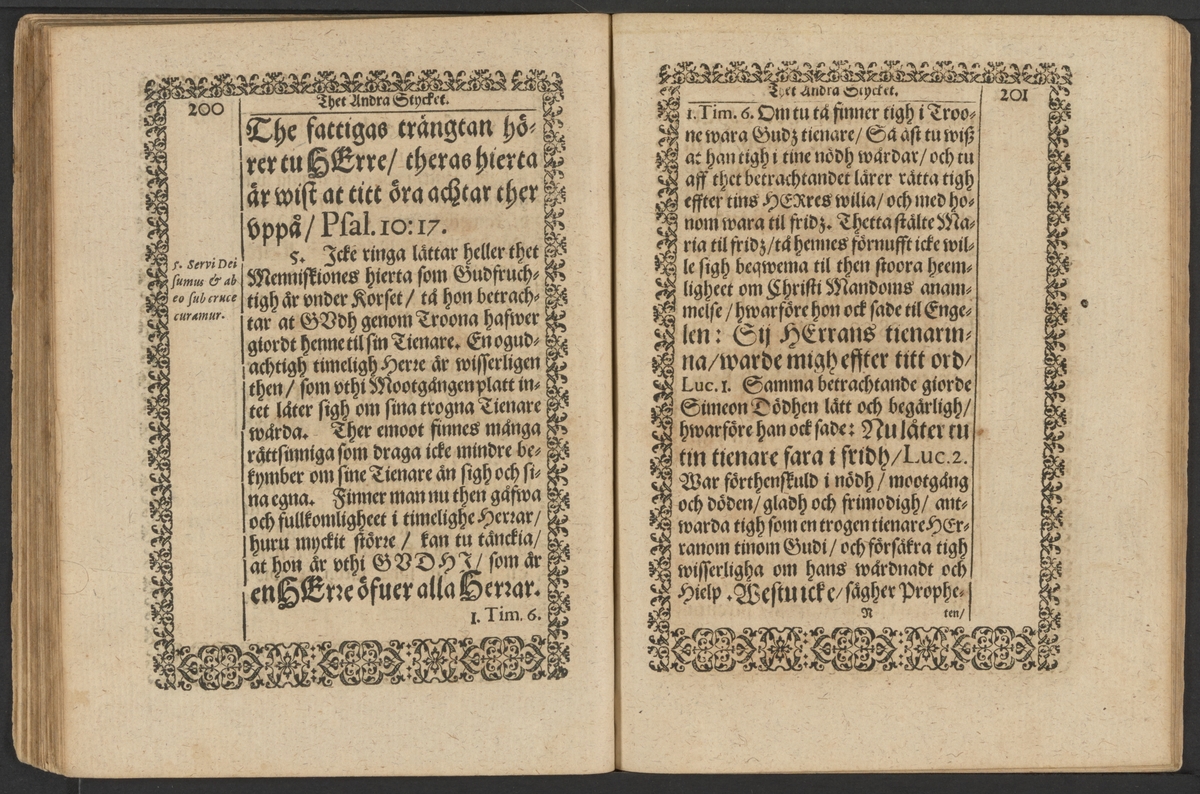 200
Thet Andra Stycket.
The fattigas trängtan hö-
rer tu HErre/ theras hierta
är wist at titt öra achtar ther
vppå/ Psal. 10: 17.
5. Icke ringa lättar heller thet
Menniskiones hierta som Gudfruch-
tigh är vnder Korset/ tå hon betrach-
tar at GVdh genom Troona hafwer
giordt henne til sin Tienare. En ogud-
achtigh timeligh Herre är wisserligen
then/ som vthi Mootgången platt in-
tet låter sigh om sina trogna Tienare
wårda. Ther emoot finnes många
rättsinniga som draga icke mindre be-
kymber om sine Tienare än sigh och si-
na egna. Finner man nu then gåfwa
och fullkomligheet i timelighe Herrar/
huru myckit större/ kan tu tänckia/
at hon är vthi GVDHI/ som är
en HErre öfuer alla Herrar.
1. Tim. 6.
5. Servi Dei
sumus & ab
eo sub cruce
curamur.
Thet Andra Stycket.
201
1. Tim. 6. Om tu tå finner tigh i Troo-
ne wara Gudz tienare/ Så äst tu wiß
at han tigh i tine nödh wårdar/ och tu
aff thet betrachtandet lärer rätta tigh
effter tins HERres wilia/ och med ho-
nom wara til fridz. Thetta stälte Ma-
ria til fridz/ tå hennes förnufft icke wil-
le sigh beqwema til then stoora heem-
ligheet om Christi Mandoms anam-
melse/ hwarföre hon ock sade til Enge-
len: Sij HErrans tienarin-
na/ warde migh effter titt ord/
Luc. 1. Samma betrachtande giorde
Simeon Dödhen lätt och begärligh/
hwarföre han ock sade: Nu låter tu
tin tienare fara i fridh/ Luc. 2.
War förthenskuld i nödh/ mootgång
och döden/ gladh och frimodigh/ ant-
warda tigh som en trogen tienare HEr-
ranom tinom Gudi/ och försäkra tigh
wisserligha om hans wårdnadt och
Hielp. Westu icke/ sägher Prophe-
N ten/